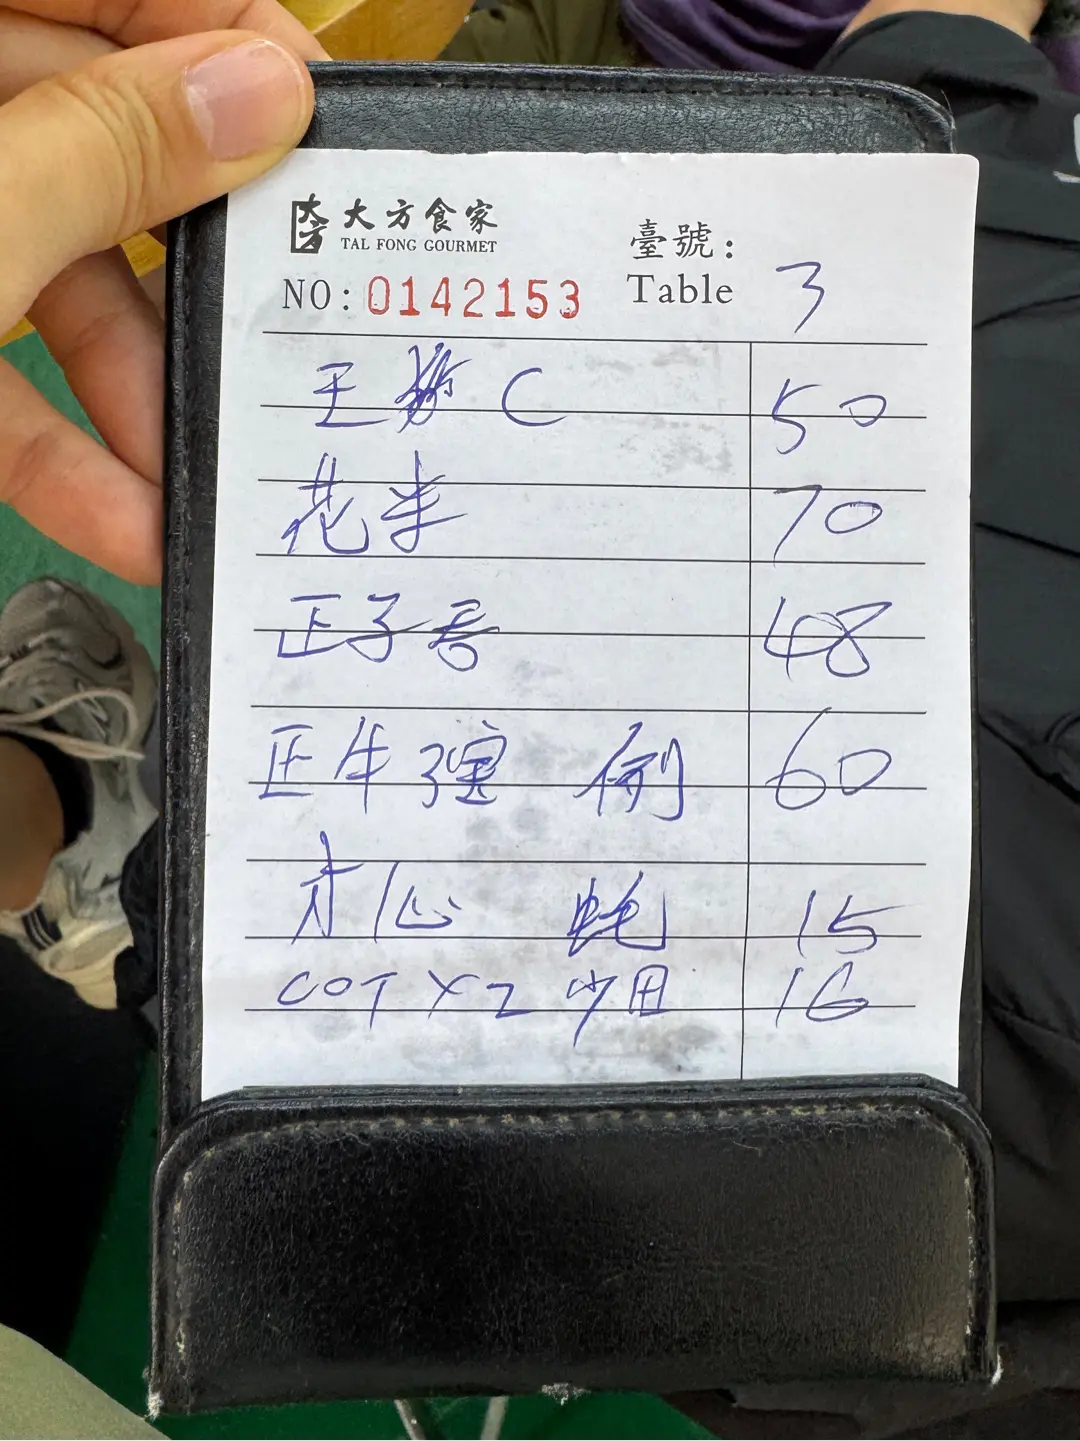 大方 大方食家
TAI FONG GOURMET
臺號：
NO: 0142153
Table 3
王 C 50
花半 70
正子吾 48
正牛 例 60
才心 蚝 15
COT X2 少田 16